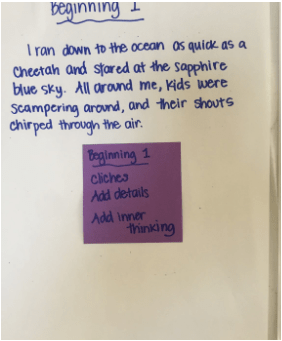 Beginning 1
I ran down to the ocean as quick as a
cheetah and stared at the sapphire
blue sky. All around me, kids were
scampering around, and their shouts
chirped through the air.
Beginning 1
cliches
Add details
Add inner
thinking